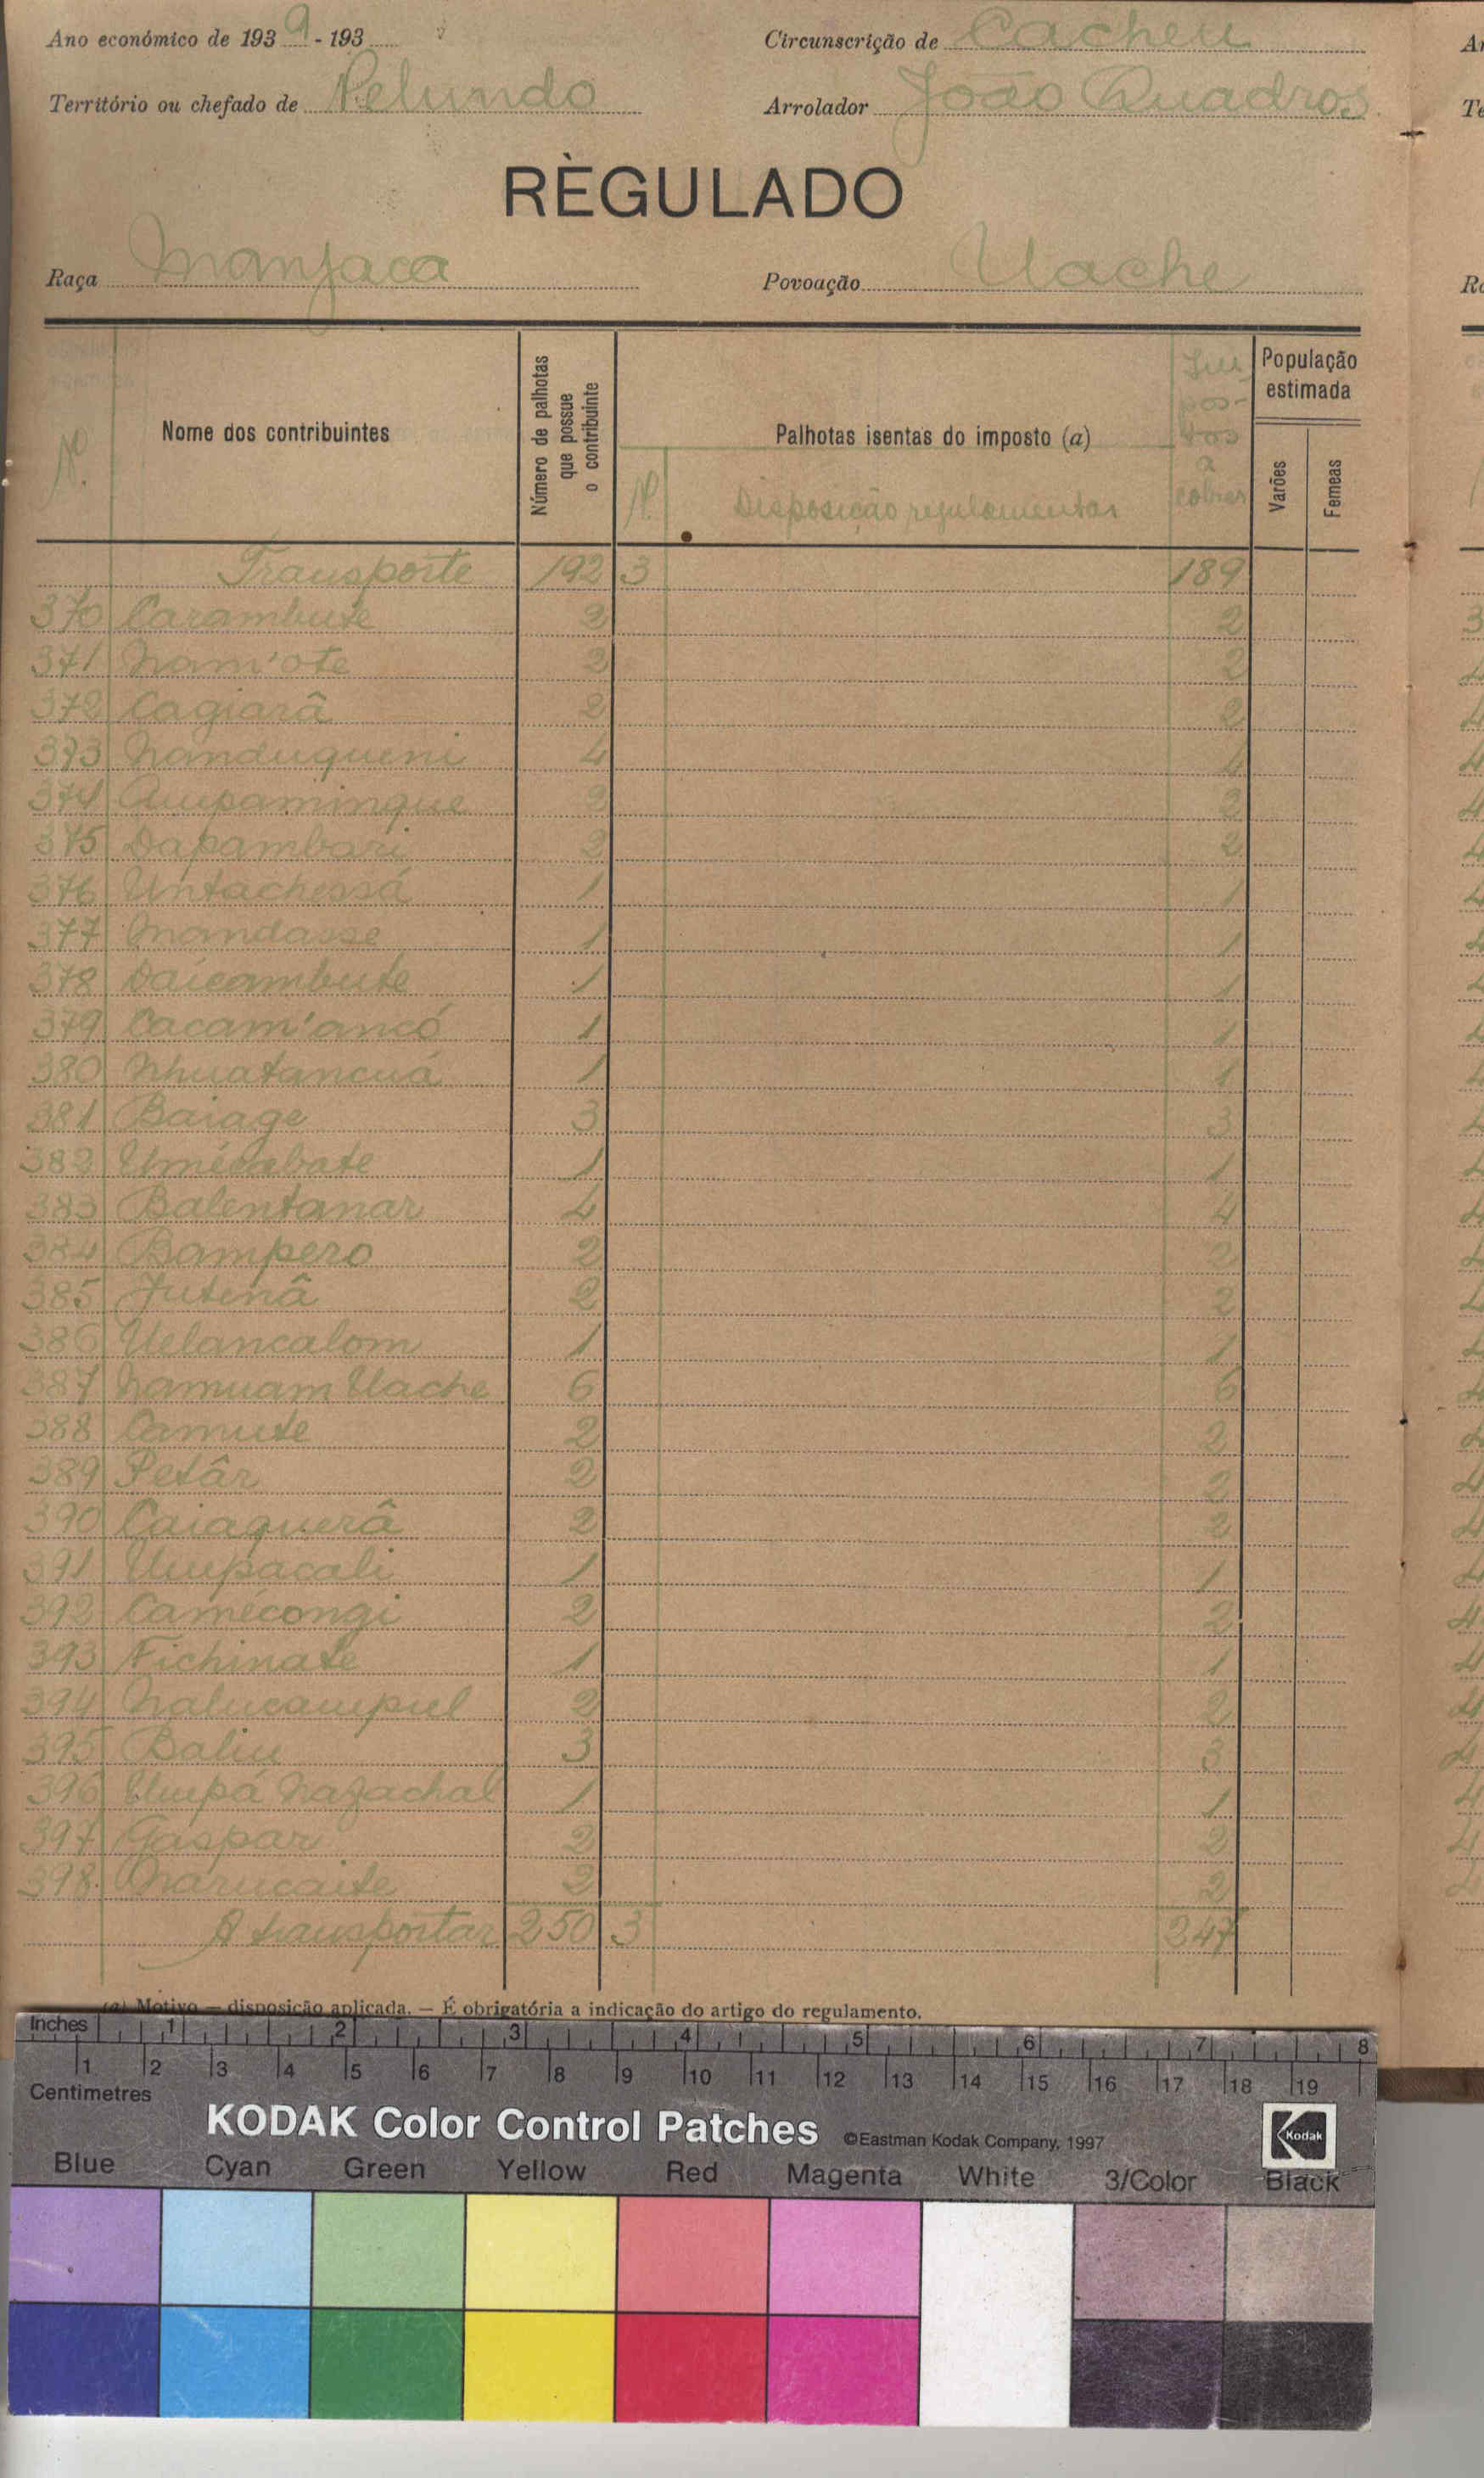 Ano económico de 1939 - 193
Circunscrição de Cacheu
Território ou chefado de Pelundo
Arrolador João Quadros
RÈGULADO
Raça Manjaca
Povoação Uache
Nº
Nome dos contribuintes
Número de palhotas que possue o contribuinte
Palhotas isentas do imposto (a)
Nº Disposição regulamentar
Impostos a cobrar
População estimada
Varões
Femeas
Transporte 192 3 189
370 Carambute 2 2
371 Nam'ote 2 2
372 Cagiarâ 2 2
373 Nanduqueni 4 4
374 Aupamingue 2 2
375 Dapambari 2 2
376 Untachessá 1 1
377 Mandasse 1 1
378 Daicambute 1 1
379 Cacam'ancó 1 1
380 Nhuatancuá 1 1
381 Baiage 3 3
382 Umécabate 1 1
383 Balentanar 4 4
384 Bampero 2 2
385 Jutenâ 2 2
386 Uelancalom 1 1
387 Namuam Uache 6 6
388 Camute 2 2
389 Petâr 2 2
390 Caiaguerâ 2 2
391 Umpacali 1 1
392 Camécongi 2 2
393 Fichinate 1 1
394 Nalucampul 2 2
395 Baliu 3 3
396 Umpá Najachal 1 1
397 Gaspar 2 2
398 Narucaite 2 2
A transportar 250 3 247
(a) Motivo — disposição aplicada. — É obrigatória a indicação do artigo do regulamento.
Inches 1 2 3 4 5 6 7 8
1 2 3 4 5 6 7 8 9 10 11 12 13 14 15 16 17 18 19
Centimetres
KODAK Color Control Patches ©Eastman Kodak Company, 1997 Kodak
Blue Cyan Green Yellow Red Magenta White 3/Color Black